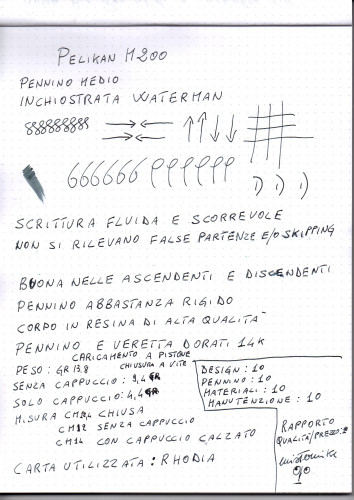 PELIKAN M200
PENNINO MEDIO
INCHIOSTRATA WATERMAN
SCRITTURA FLUIDA E SCORREVOLE
NON SI RILEVANO FALSE PARTENZE E/O SKIPPING
BUONA NELLE ASCENDENTI E DISCENDENTI
PENNINO ABBASTANZA RIGIDO
CORPO IN RESINA DI ALTA QUALITA'
PENNINO E VERETTA DORATI 14K
CARICAMENTO A PISTONE
CHIUSURA A VITE
PESO: GR 13,8
SENZA CAPPUCCIO: 9,4 GR
SOLO CAPPUCCIO: 4,4 GR
MISURA CM 12,4 CHIUSA
CM 12 SENZA CAPPUCCIO
CM 14 CON CAPPUCCIO CALZATO
CARTA UTILIZZATA: RHODIA
DESIGN: 10
PENNINO: 10
MATERIALI: 10
MANUTENZIONE: 10
RAPPORTO
QUALITÀ/PREZZO: